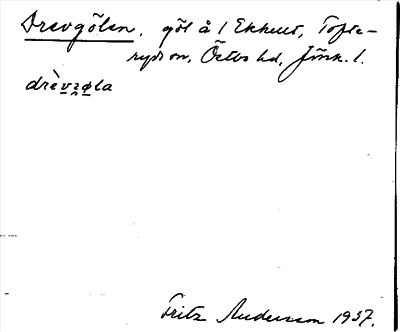 Drevgölen, göl å 1 Ekhult, Tofte-
ryds sn, Östbo hd, Jönk. l.
drèvz̨øla
Fritz Andersson 1937.